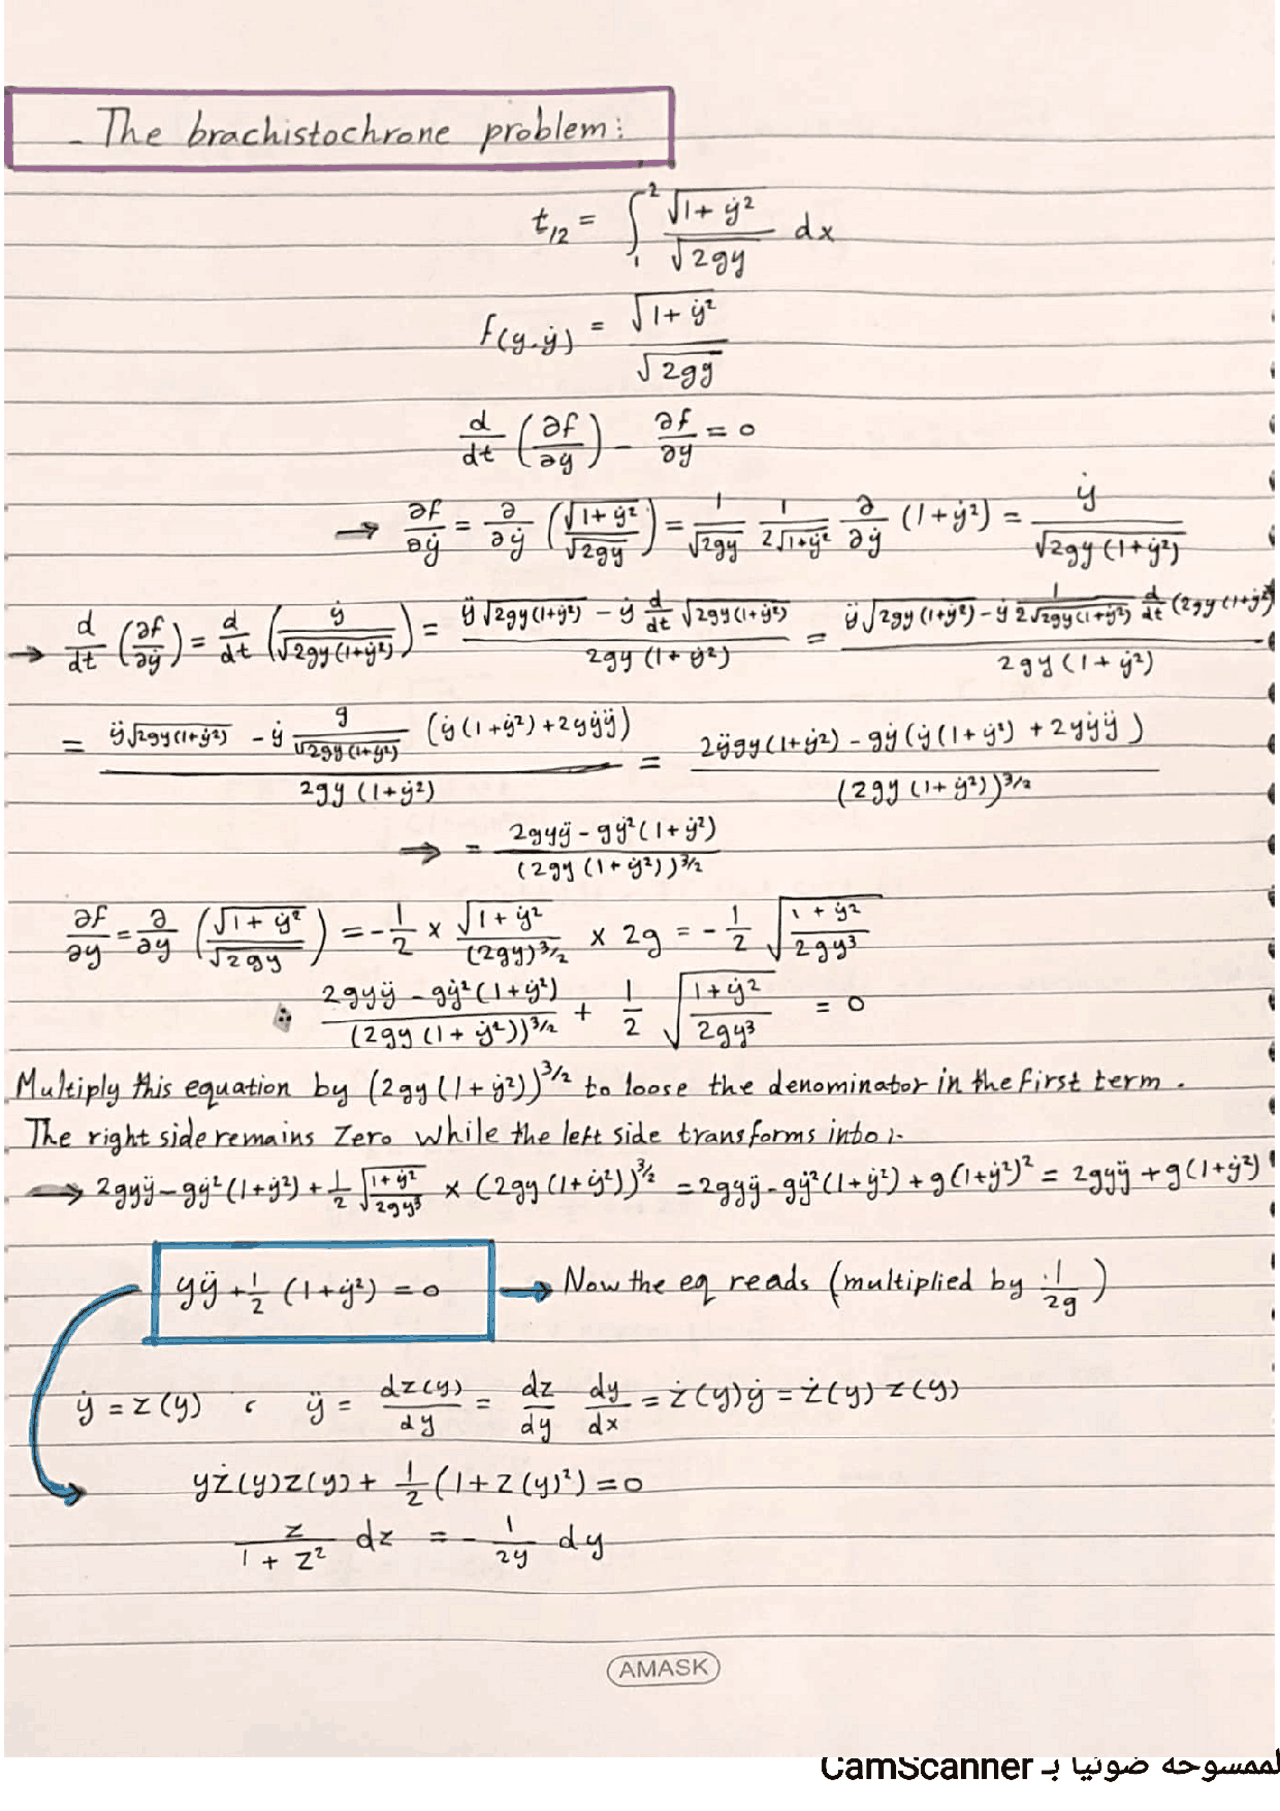 - The brachistochrone problem:
t₁₂ = ∫₁² √(1+ẏ²) / √(2gy) dx
f(y.ẏ) = √(1+ẏ²) / √(2gy)
d/dt (∂f/∂y) - ∂f/∂y = 0
→ ∂f/∂ẏ = ∂/∂ẏ (√(1+ẏ²)/√(2gy)) = 1/√(2gy) 1/(2√(1+ẏ²)) ∂/∂ẏ (1+ẏ²) = ẏ/√(2gy(1+ẏ²))
→ d/dt (∂f/∂ẏ) = d/dt (ẏ/√(2gy(1+ẏ²))) = (ÿ√(2gy(1+ẏ²)) - ẏ d/dt √(2gy(1+ẏ²))) / (2gy(1+ẏ²)) = (ÿ√(2gy(1+ẏ²)) - ẏ 1/(2√(2gy(1+ẏ²))) d/dt (2gy(1+ẏ²) / (2gy(1+ẏ²))
= (ÿ√(2gy(1+ẏ²)) - ẏ g/√(2gy(1+ẏ²)) (ẏ(1+ẏ²)+2yẏÿ)) / (2gy(1+ẏ²)) = (2ÿgy(1+ẏ²) - gẏ(ẏ(1+ẏ²) + 2yẏÿ)) / (2gy(1+ẏ²))^3/2
⇒ = (2gyÿ - gẏ²(1+ẏ²)) / (2gy(1+ẏ²))^3/2
∂f/∂y = ∂/∂y (√(1+ẏ²)/√(2gy)) = -1/2 × √(1+ẏ²)/(2gy)^3/2 × 2g = -1/2 √((1+ẏ²)/(2gy³))
∴ (2gyÿ - gẏ²(1+ẏ²)) / (2gy(1+ẏ²))^3/2 + 1/2 √((1+ẏ²)/(2gy³)) = 0
Multiply this equation by (2gy(1+ẏ²))^3/2 to loose the denominator in the first term.
The right side remains Zero while the left side transforms into:-
→ 2gyÿ - gẏ²(1+ẏ²) + 1/2 √((1+ẏ²)/(2gy³)) × (2gy(1+ẏ²))^3/2 = 2gyÿ - gẏ²(1+ẏ²) + g(1+ẏ²)² = 2gyÿ + g(1+ẏ²)
yÿ + 1/2 (1+ẏ²) = 0 → Now the eq reads (multiplied by 1/2g)
ẏ = z(y) ، ÿ = dz(y)/dy = dz/dy dy/dx = ż(y)ẏ = ż(y) z(y)
yż(y)z(y) + 1/2 (1+z(y)²) = 0
z/(1+z²) dz = - 1/2y dy
AMASK
الممسوحة ضوئيا بـ CamScanner